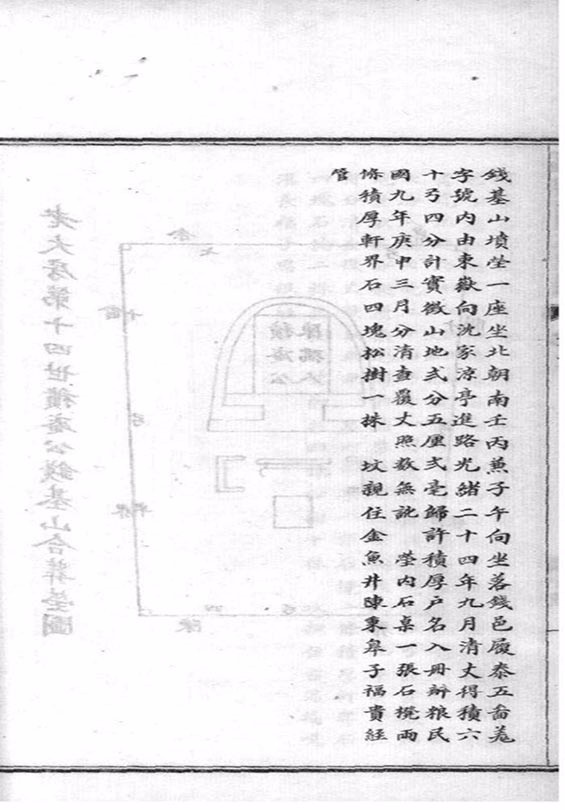 錢基山墳塋一座坐北朝南壬丙兼子午向坐落錢邑履泰五畨羗
字號内由東嶽向沈家涼亭進路光緒二十四年九月清丈得積六
十弓四分計實徵山地弍分五厘弍毫歸許積厚戶名入冊辦粮民
國九年庚申三月分清查覆丈照數無訛 塋内石桌一張石櫈兩
條積厚軒界石四塊松樹一株 坟親住金魚井陳秉皋子福貴經
管
老大房第十四世積庵公錢基山合葬塋圖